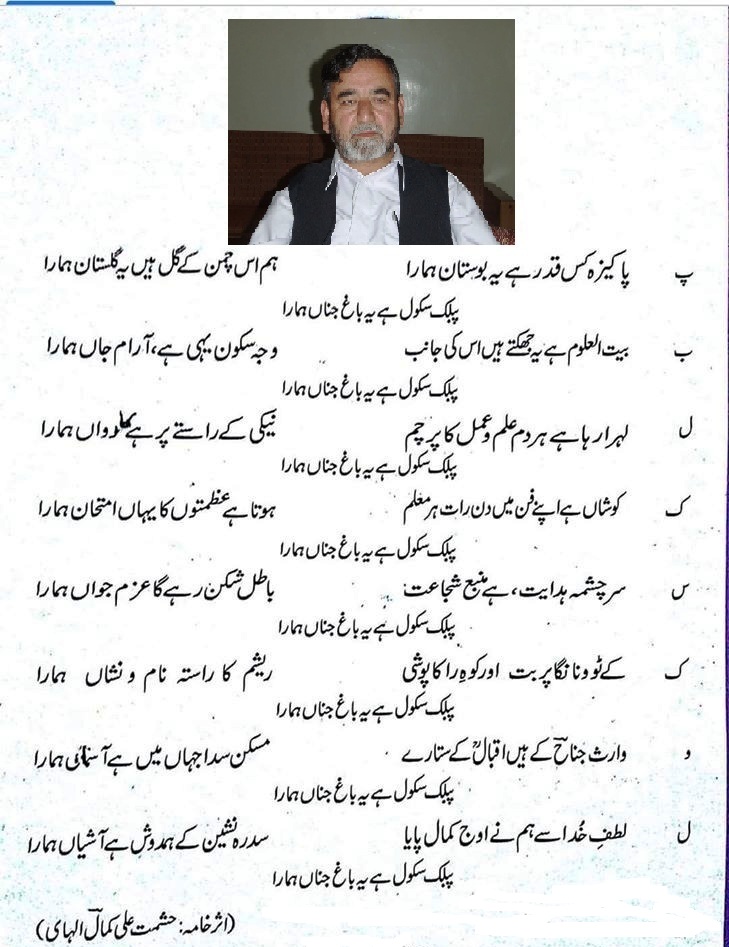 پ پاکیزہ کس قدر ہے یہ بوستان ہمارا ہم اس چمن کے گل ہیں یہ گلستان ہمارا
پبلک سکول ہے یہ باغ جناں ہمارا
ب بیت العلوم ہے یہ جھکتے ہیں اس کی جانب وجہ سکون یہی ہے، آرام جاں ہمارا
پبلک سکول ہے یہ باغ جناں ہمارا
ل لہرا رہا ہے ہر دم علم و عمل کا پرچم نیکی کے راستے پر ہے ہمارا
پبلک سکول ہے یہ باغ جناں ہمارا
ک کوشاں ہے اپنے فن میں دن رات ہر معلم ہوتا ہے عظمتوں کا یہاں امتحان ہمارا
پبلک سکول ہے یہ باغ جناں ہمارا
س سرچشمہ ہدایت، ہے منبع شجاعت باطل شکن رہے گا عزم جواں ہمارا
پبلک سکول ہے یہ باغ جناں ہمارا
ک کے ٹو و نانگا پربت اور کوہِ راکاپوشی ریشم کا راستہ نام و نشاں ہمارا
پبلک سکول ہے یہ باغ جناں ہمارا
و وارث جناحؒ کے ہیں اقبالؒ کے ستارے مسکن سدا جہاں میں ہے ہمارا
پبلک سکول ہے یہ باغ جناں ہمارا
ل لطفِ خُدا سے ہم نے اوج کمال پایا سدرہ نشین کے ہمدوش ہے آشیاں ہمارا
پبلک سکول ہے یہ باغ جناں ہمارا
(اثر خامہ: حشمت علی کمالؔ الہامی)